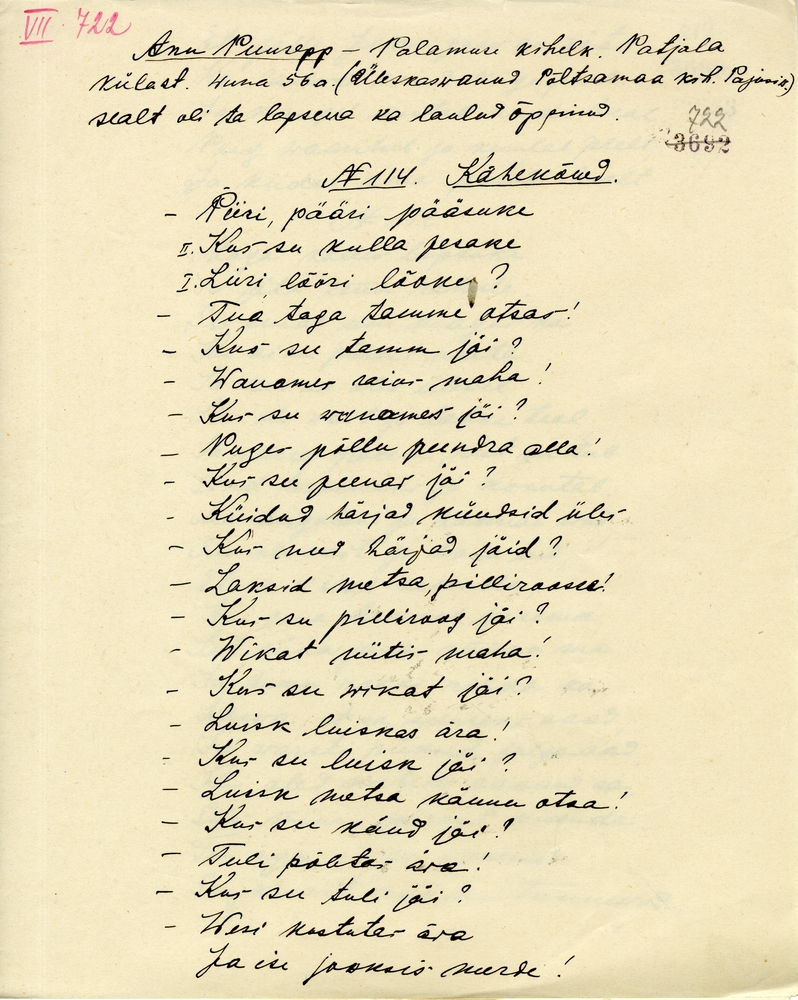 VII 722
Anu Puusepp – Palamuse kihelk. Patjala
külast. wana 56 a. (Üleskaswanud Põltsamaa kih. Pajusin.)
sealt oli ta lapsena ka laulud õppinud.
722
3692
№ 114. Kähekõned.
– Piiri, pääri pääsuke
II. Kus su kulla pesake
I. Liiri lööri lõoke?
– Tua taga tamme otsas!
– Kus su tamm jäi?
– Wanames raius maha!
– Kus su wanames jäi?
– Puges põllu peendra alla!
– Kus su peenar jäi?
– Küidud härjad kündsid üles
– Kus need härjad jäid?
– Laksid metsa, pilliroosse!
– Kus su pilliroog jäi?
– Wikat niitis maha!
– Kus su wikat jäi?
– Luisk luiskas ära!
– Kus su luisk jäi?
– Luisk metsa kännu otsa!
– Kus su känd jäi?
– Tuli põletas ära!
– Kus su tuli jäi?
– Wesi kustutas ära
Ja ise jooksis merde!